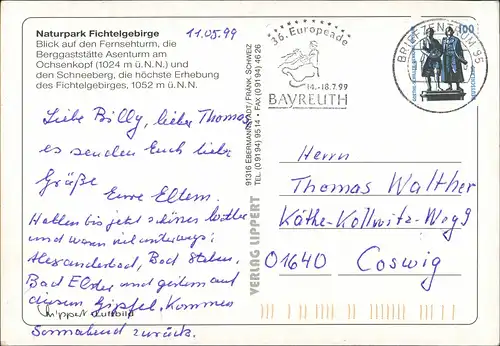 Naturpark Fichtelgebirge
Blick auf den Fernsehturm, die
Berggaststätte Asenturm am
Ochsenkopf (1024 m ü.N.N.) und
den Schneeberg, die höchste Erhebung
des Fichtelgebirges, 1052 m ü.N.N.
11.05.99
Liebe Billy, lieber Thomas,
es senden Euch liebe
Grüße
Eure Eltern.
Hatten bis jetzt schönes Wetter
und waren viel unterwegs:
Alexandersbad, Bad Steben,
Bad Elster und gestern auf
diesem Gipfel. Kommen
Sonnabend zurück.
Luftbild
91316 EBERMANNSTADT/FRÄNK. SCHWEIZ
TEL. (0 91 94) 95 14 • FAX (0 91 94) 46 26
VERLAG LIPPERT
36. Europeade
14.-18.7.99
BAYREUTH
BRIEFZENTRUM 95
100
Herrn
Thomas Walther
Käthe-Kollwitz-Weg 9
01640 Coswig